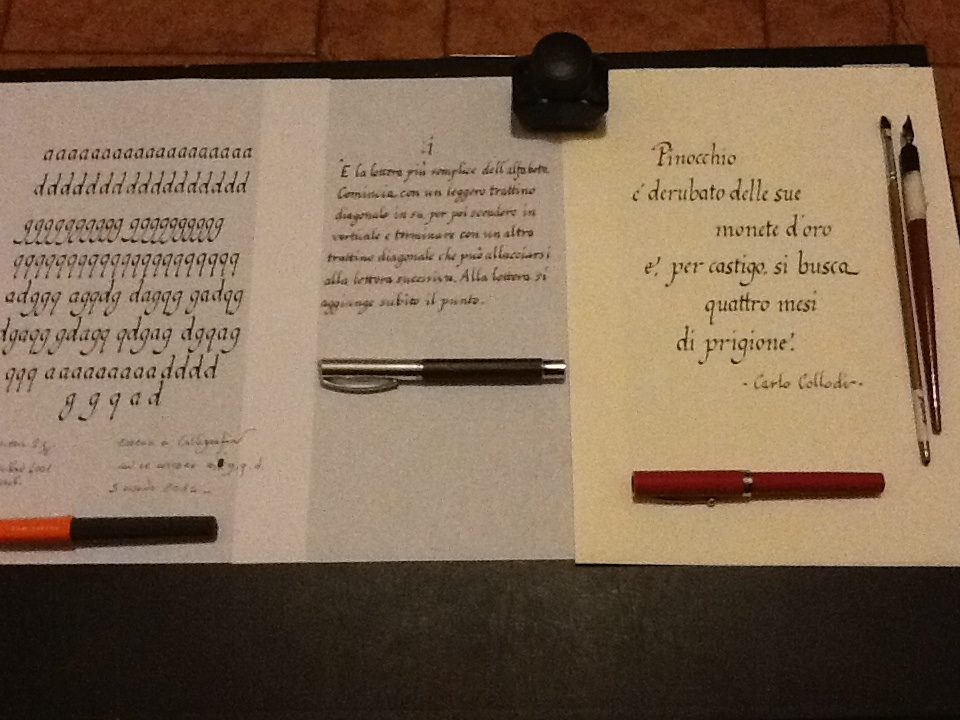 aaaaaaaaaaaaaaaaaa
dddddddddddddddddd
gggggggggg gggggggggg
qqqqqqqqqqqqqqqqqqqq
adgqq aqgdg daggq gadqg
dgaqg gdagq qdgag dgqag
qqq aaaaaaaaadddd
g g q a d
i
È la lettera più semplice dell'alfabeto.
Comincia con un leggero trattino
diagonale in su per poi scendere in
verticale e terminare con un altro
trattino diagonale che può allacciarsi
alla lettera successiva. Alla lettera si
aggiunge subito il punto.
Pinocchio
è derubato delle sue
monete d'oro
e, per castigo, si busca
quattro mesi
di prigione.
- Carlo Collodi -